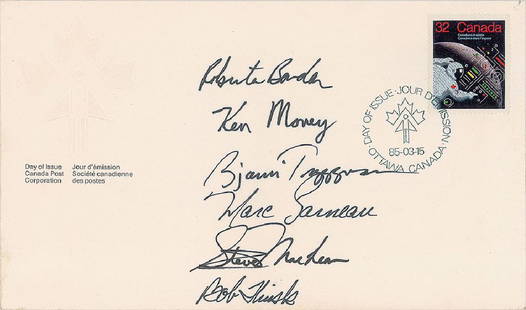 32 Canada
Canadians in space
Canadiens dans l'espace
DAY OF ISSUE · JOUR D'ÉMISSION
85-03-15
OTTAWA CANADA
Roberta Bondar
Ken Money
Bjarni Tryggvason
Marc Garneau
Steve MacLean
Bob Thirsk
Day of Issue Jour d'émission
Canada Post Société canadienne
Corporation des postes